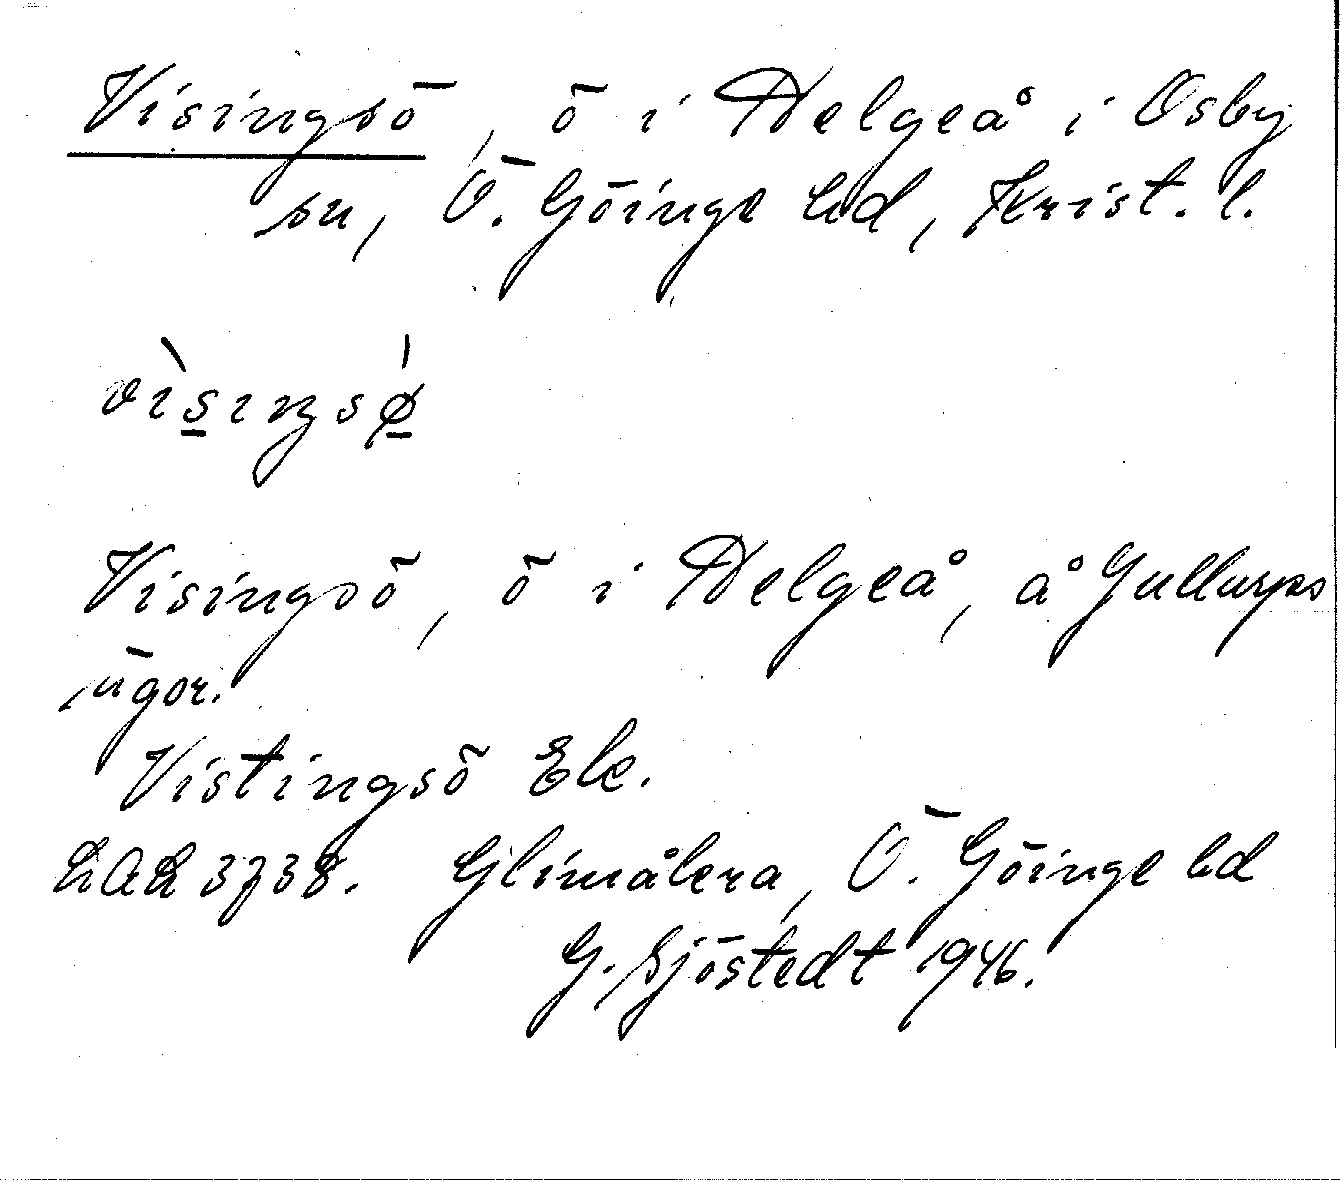 Visingsö, ö i Helgeå i Osby
sn, Ö. Göinge hd, Krist. l.
vìsiŋsǿ
Visingsö, ö i Helgeå, å Gullarps
ägor.
Vistingsö Ek.
LAL 3738. Glimåkra, Ö. Göinge hd
G. Sjöstedt 1946.